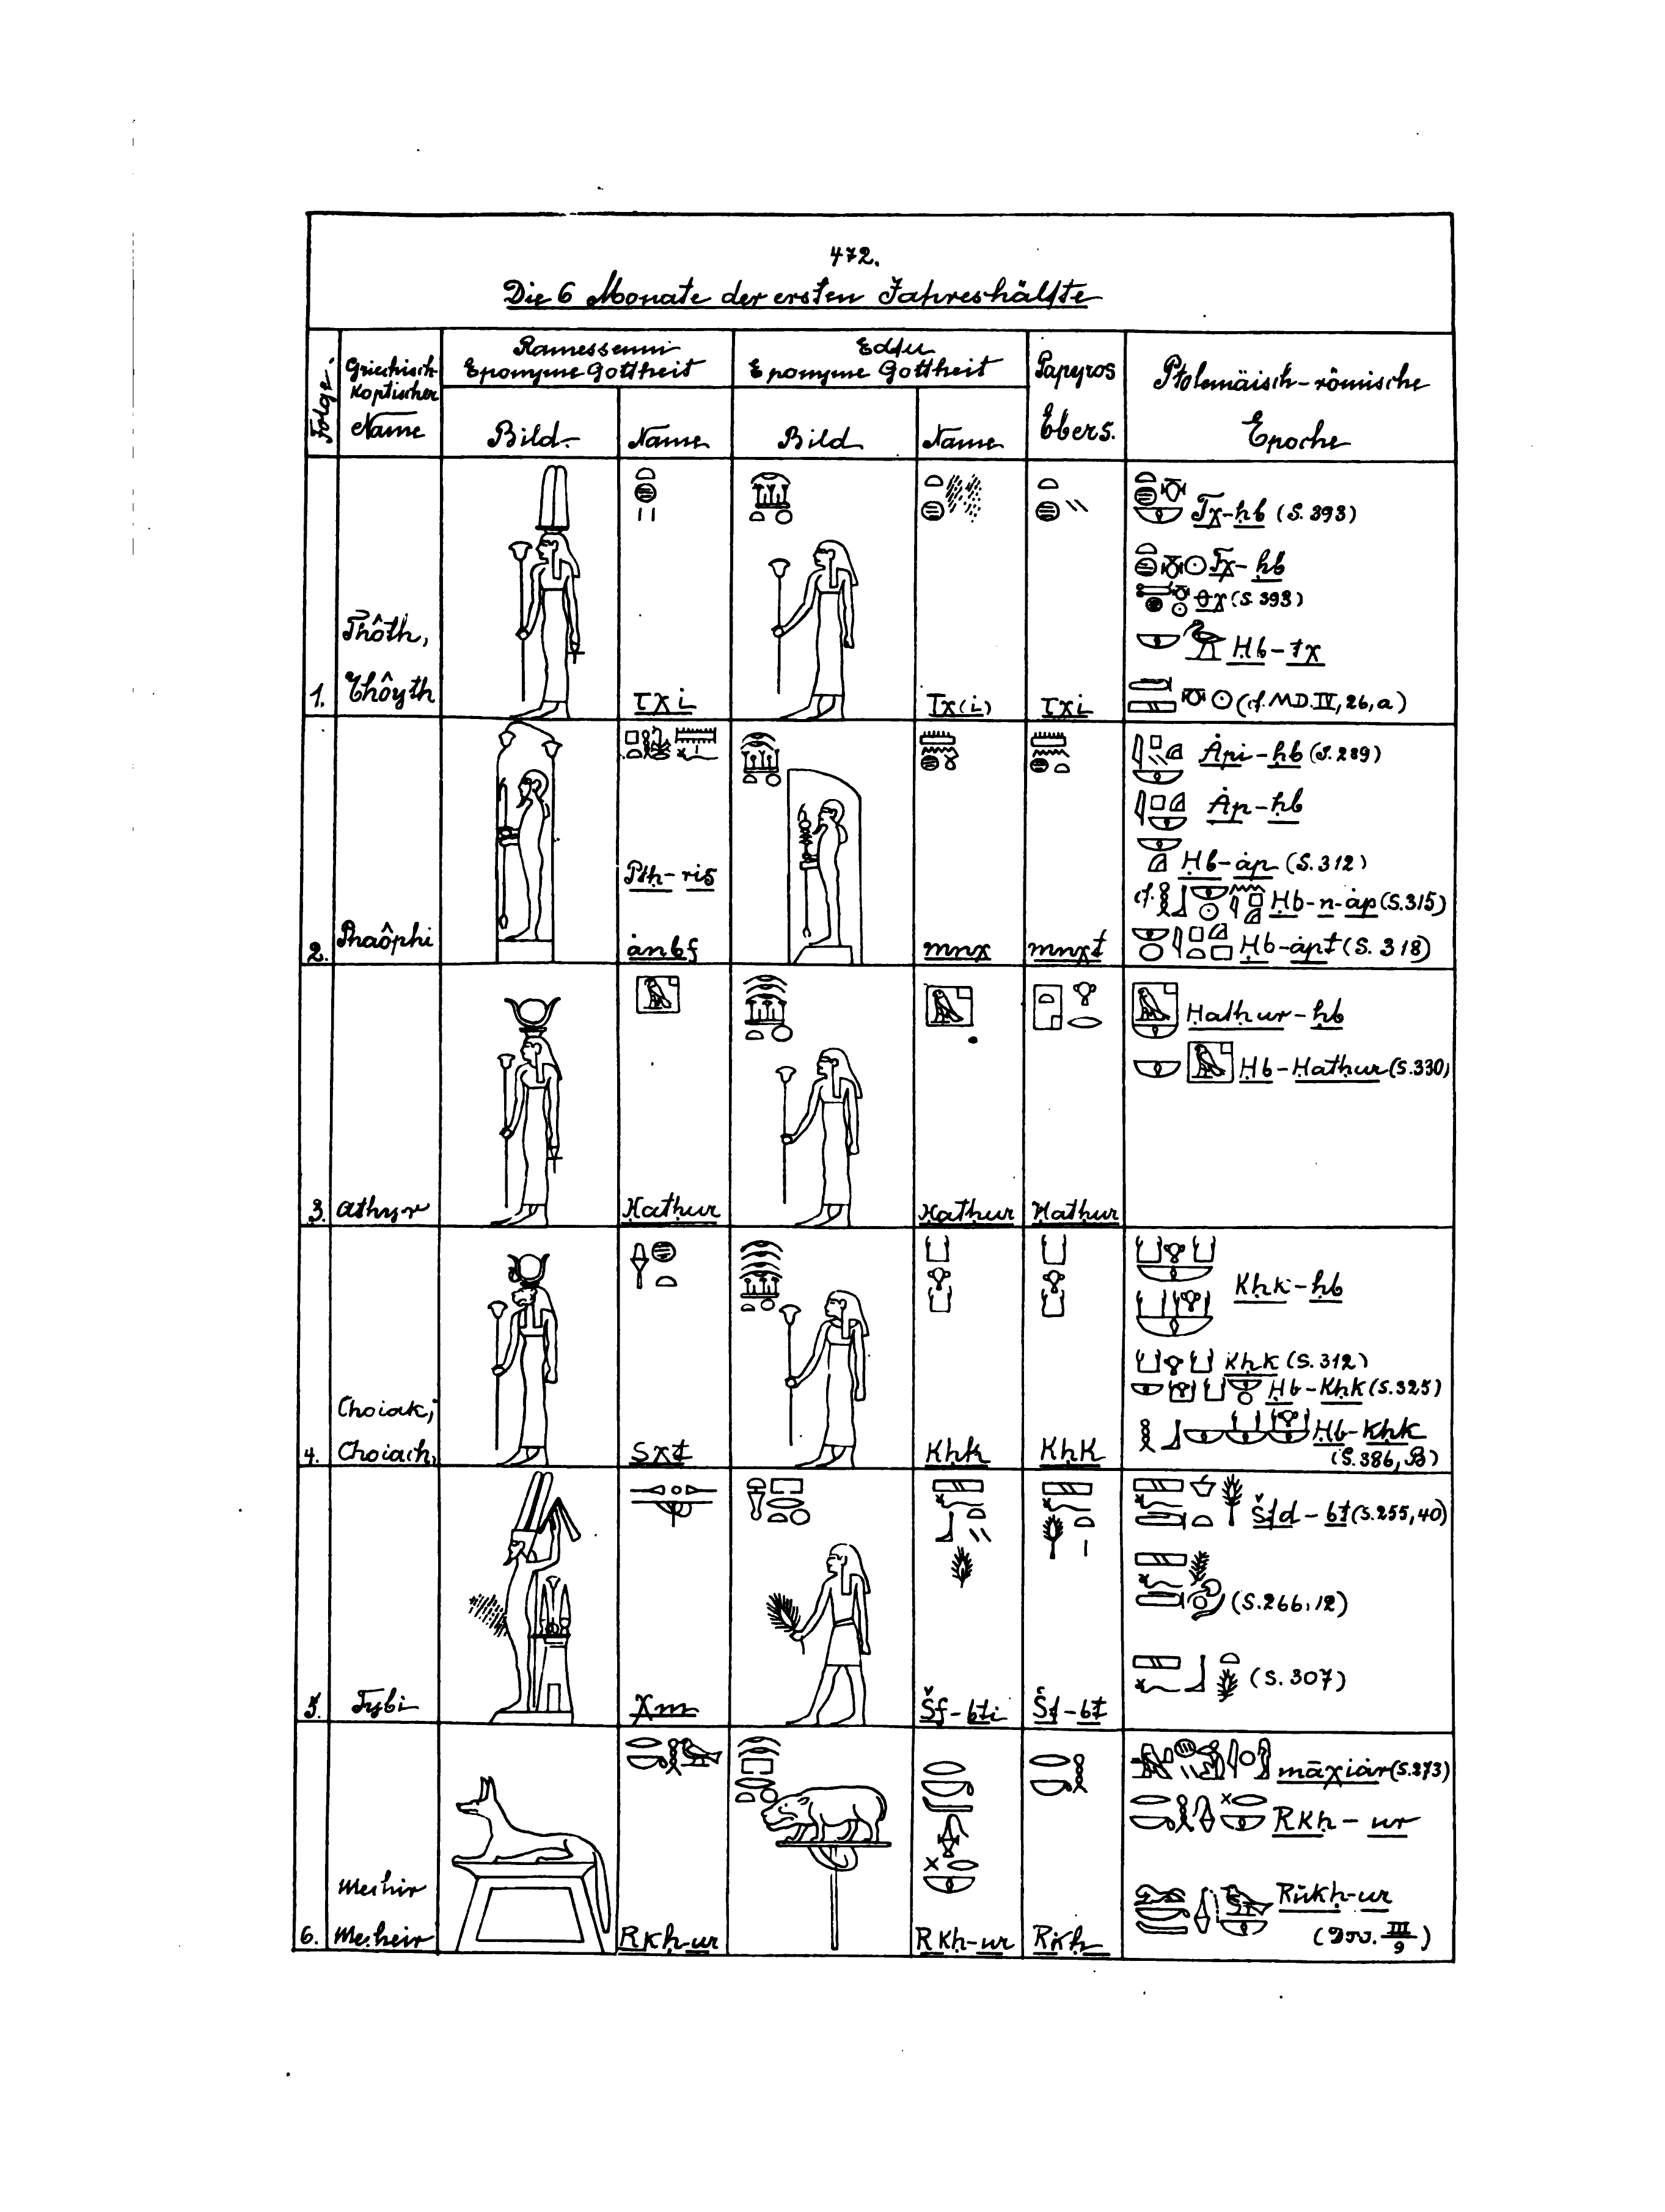 472.
Die 6 Monate der ersten Jahreshälfte
Folge.
Griechisch-
Koptischer
Name
Ramesseum
Eponyme Gottheit
Bild.
Name
Edfu
Eponyme Gottheit
Bild
Name
Papyros
Ebers.
Ptolemäisch-römische
Epoche
1.
Thôth,
Thôyth
Tχi
Tχ(i)
Tχi
Tχ-ḥb (S. 393)
Tχ-ḥb
θχ (S. 393)
Ḥb-tχ
(cf. MD. IV, 26, a)
2.
Phaôphi
Ptḥ-ris
ȧnbf
mnχ
mnχt
Ȧpi-ḥb (S. 289)
Ȧp-ḥb
Ḥb-ȧp (S. 312)
cf. Ḥb-n-ȧp (S. 315)
Ḥb-ȧpt (S. 318)
3.
Athyr
Ḥatḥur
Ḥatḥur
Ḥatḥur
Ḥatḥur-ḥb
Ḥb-Ḥatḥur (S. 330)
4.
Choiak,
Choiach,
Sχt
Kḥk
KḥK
Kḥk-ḥb
Kḥk (S. 312)
Ḥb-Kḥk (S. 325)
Ḥb-Kḥk
(S. 386, B)
5.
Tybi
Xm
Šf-bti
Šf-bt
Šfd-bt (S. 255, 40)
(S. 266, 12)
(S. 307)
6.
Mechir
Mecheir
Rkḥ-ur
Rkḥ-ur
Rkḥ
māχiȧr (S. 273)
Rkḥ-ur
Rukḥ-ur
III
9